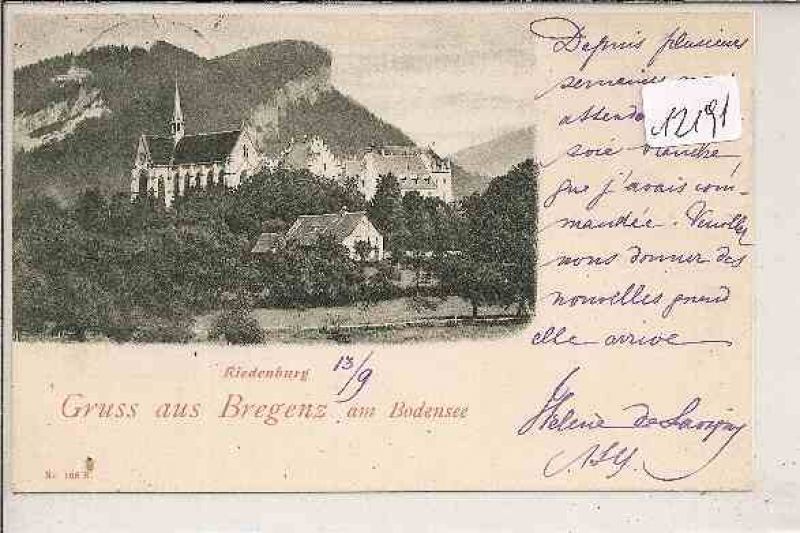 Depuis plusieurs
semaines
attend
soie blanche
que j'avais com-
mandée. Veuillez
nous donner des
nouvelles quand
elle arrive
12191
Riedenburg
13/9
Gruss aus Bregenz am Bodensee
Helene de Savigny
No. 168 B.